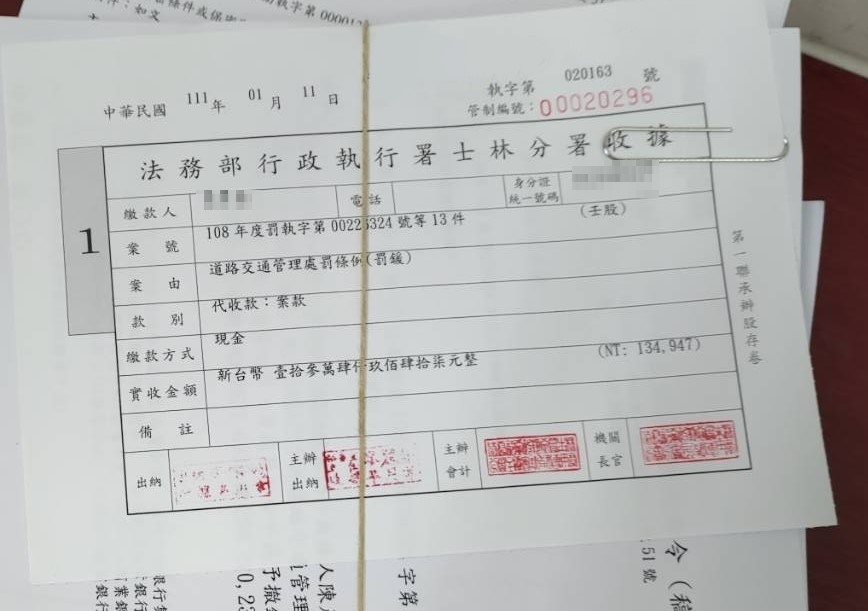 如文
執字第 00001
中華民國 111 年 01 月 11 日
執字第 020163 號
管制編號：00020296
法務部行政執行署士林分署收據
1
繳款人
電話
身分證
統一號碼
案號 108 年度罰執字第 00226324 號等 13 件 (壬股)
案由 道路交通管理處罰條例(罰鍰)
款別 代收款：案款
繳款方式 現金
實收金額 新台幣 壹拾參萬肆仟玖佰肆拾柒元整 (NT: 134,947)
備註
出納
主辦
出納
主辦
會計
機關
長官
第一聯承辦股存卷
令（稿
51 號
字第
人陳
管理
予撤
0,23